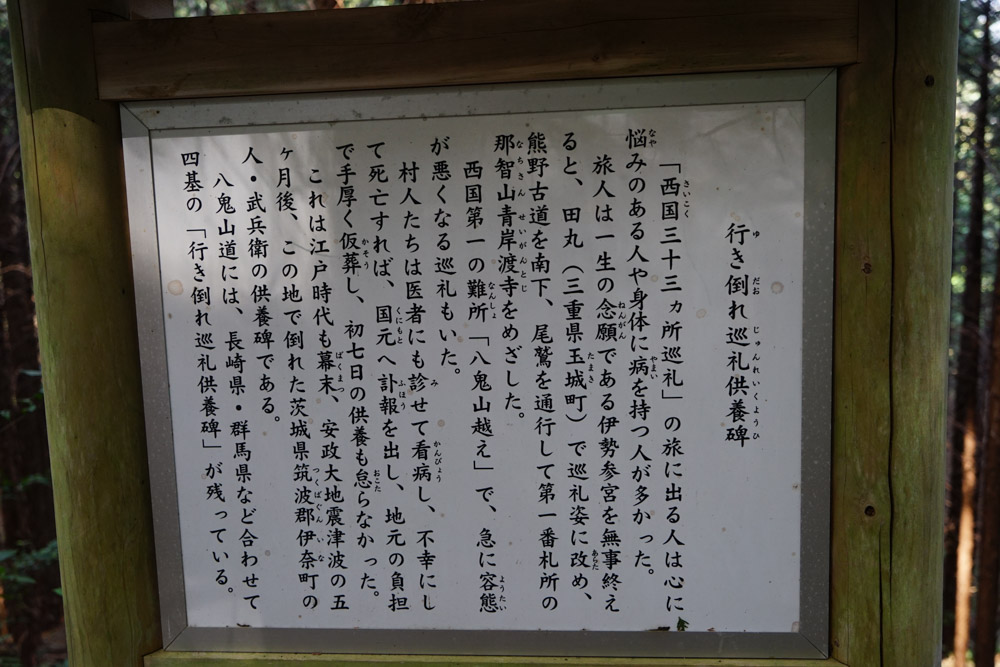 行き倒れ巡礼供養碑
「西国三十三ヵ所巡礼」の旅に出る人は心に
悩みのある人や身体に病を持つ人が多かった。
旅人は一生の念願である伊勢参宮を無事終え
ると、田丸（三重県玉城町）で巡礼姿に改め、
熊野古道を南下、尾鷲を通行して第一番札所の
那智山青岸渡寺をめざした。
西国第一の難所「八鬼山越え」で、急に容態
が悪くなる巡礼もいた。
村人たちは医者にも診せて看病し、不幸にし
て死亡すれば、国元へ訃報を出し、地元の負担
で手厚く仮葬し、初七日の供養も怠らなかった。
これは江戸時代も幕末、安政大地震津波の五
ヶ月後、この地で倒れた茨城県筑波郡伊奈町の
人・武兵衛の供養碑である。
八鬼山道には、長崎県・群馬県など合わせて
四基の「行き倒れ巡礼供養碑」が残っている。